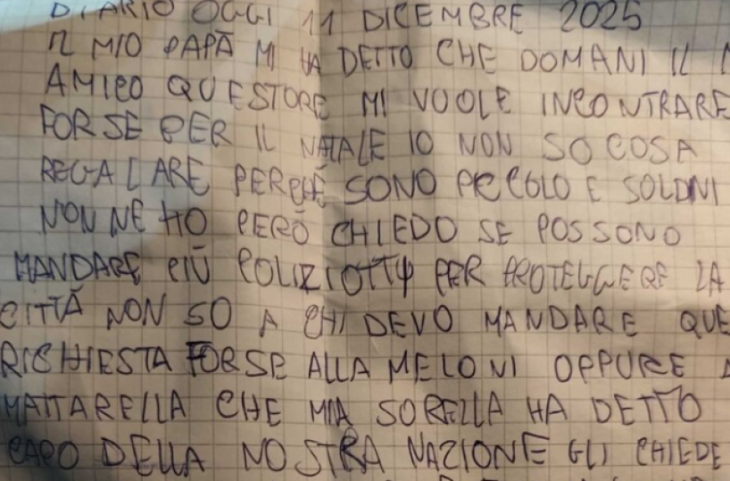 DIARIO OGGI 11 DICEMBRE 2025
IL MIO PAPÀ MI HA DETTO CHE DOMANI IL
AMICO QUESTORE MI VUOLE INCONTRARE
FORSE PER IL NATALE IO NON SO COSA
REGALARE PERCHÉ SONO PICCOLO E SOLDNI
NON NE HO PERÒ CHIEDO SE POSSONO
MANDARE PIÙ POLIZIOTTY PER PROTEGGERE LA
CITTÀ NON SO A CHI DEVO MANDARE QUE
RICHIESTA FORSE ALLA MELONI OPPURE A
MATTARELLA CHE MIA SORELLA HA DETTO
CAPO DELLA NOSTRA NAZIONE GLI CHIEDE